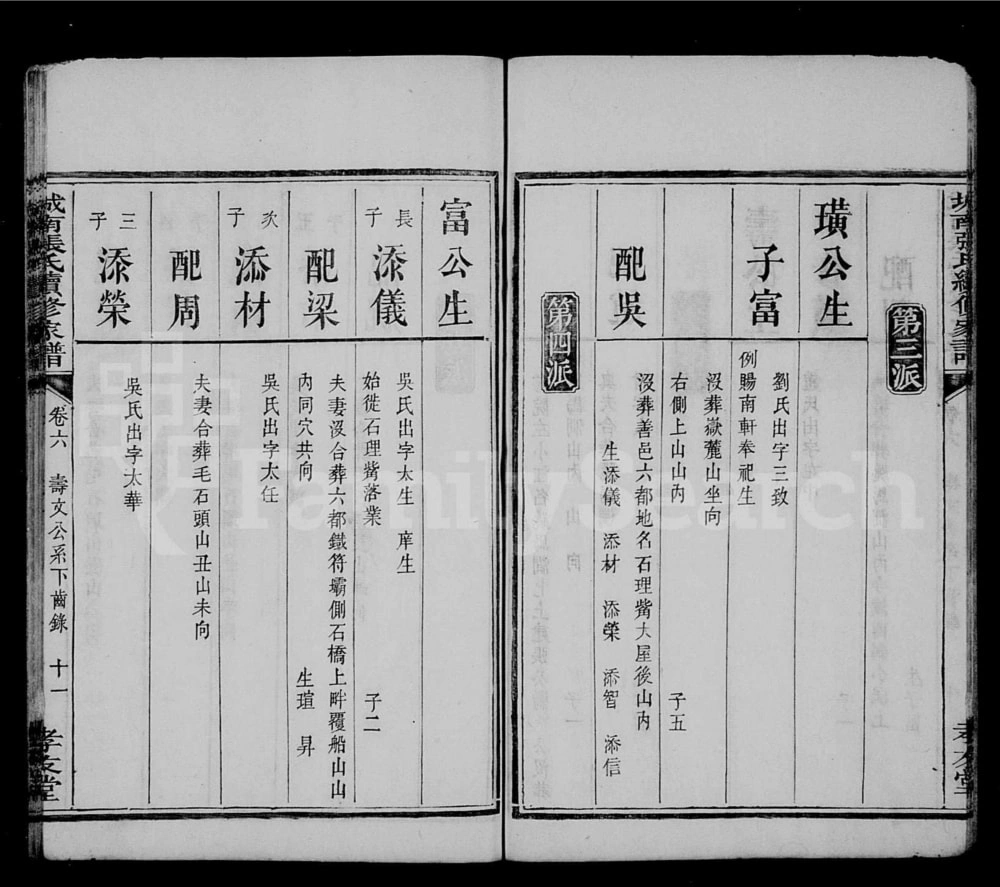 第三派
璜公生
子富
劉氏出字三致
例賜南軒奉祀生
沒葬嶽麓山坐向
右側上山山內 子五
配吳
沒葬善邑六都地名石理觜大屋後山內
生添儀 添材 添榮 添智 添信
第四派
孝友堂
富公生
長子 添儀
吳氏出字太生 庠生
始徙石理觜落業 子二
配梁
夫妻沒合葬六都鐵符壩側石橋上畔覆船山山
內同穴共向 生瑄 昇
次子 添材
吳氏出字太任
配周
夫妻合葬毛石頭山丑山未向
三子 添榮
吳氏出字太華
城南張氏續修家譜 卷六 壽文公系下齒錄 十一 孝友堂
FamilySearch